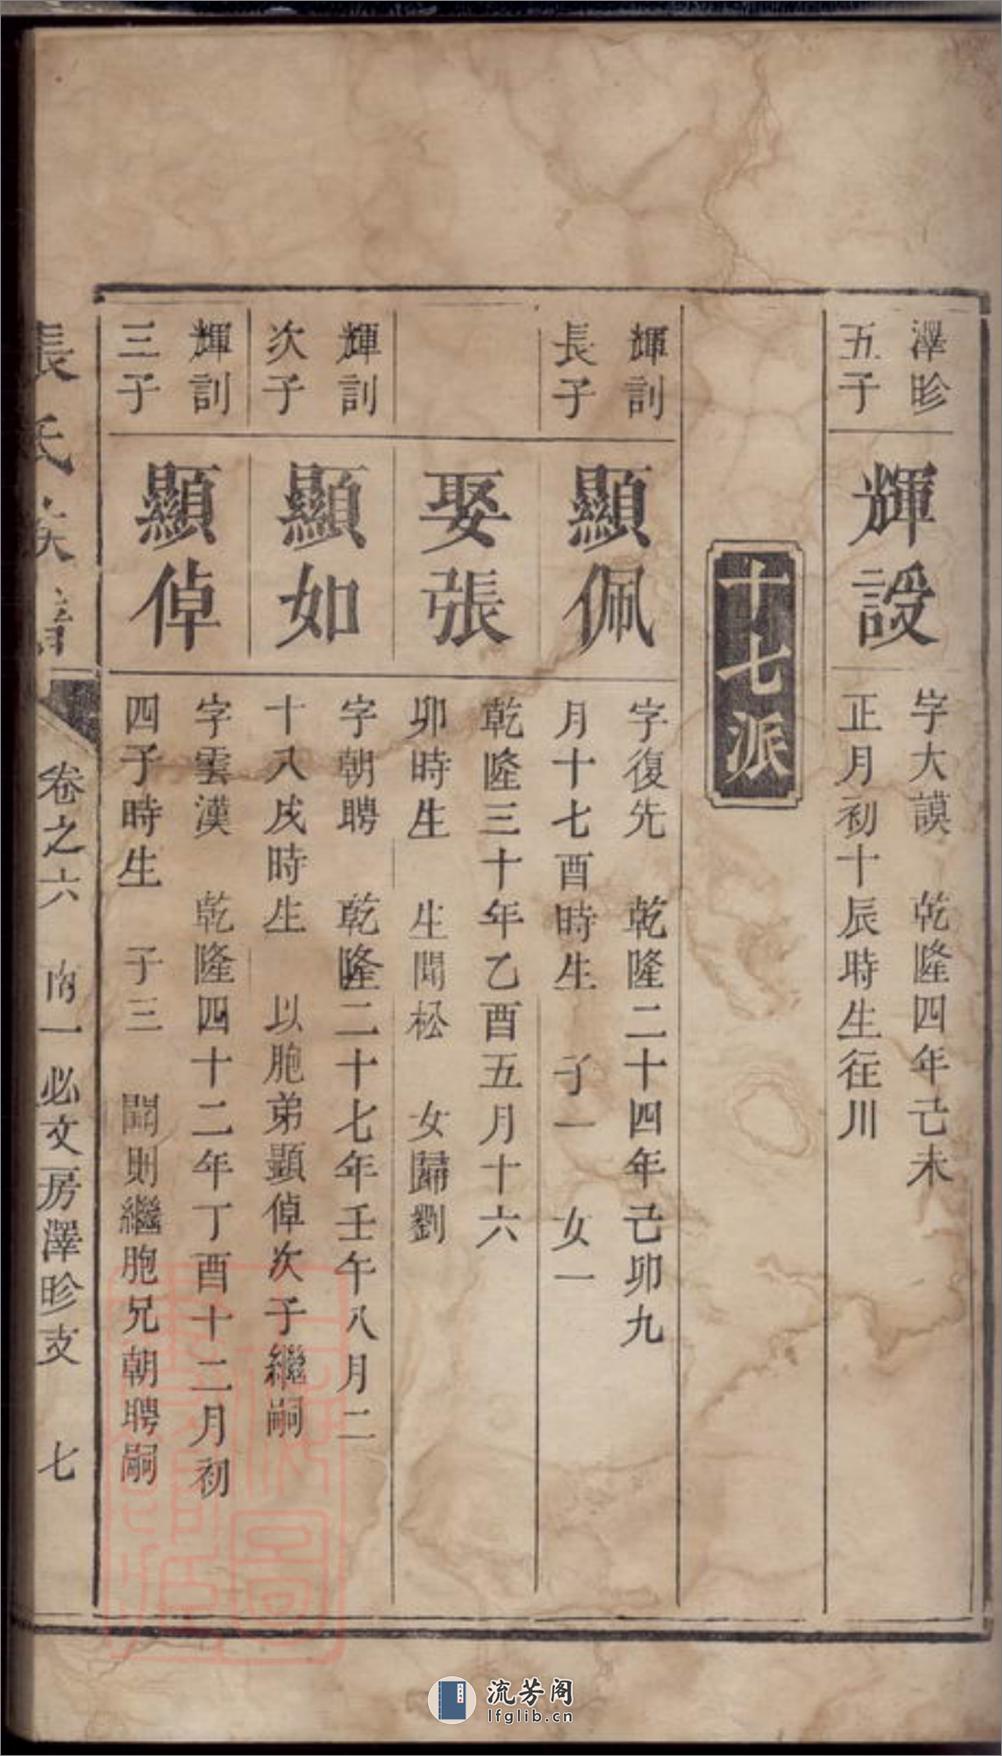 澤昣
五子
輝設
字大謨　乾隆四年己未
正月初十辰時生往川
十七派
輝訓
長子
顯佩
字復先　乾隆二十四年己卯九
月十七酉時生　子一　女一
娶張
乾隆三十年乙酉五月十六
卯時生　生聞松　女歸劉
輝訓
次子
顯如
字朝聘　乾隆二十七年壬午八月二
十八戌時生　以胞弟顯倬次子繼嗣
輝訓
三子
顯倬
字雲漢　乾隆四十二年丁酉十二月初
四子時生　子三　聞則繼胞兄朝聘嗣
張氏族譜
卷之六　尚一必文房澤昣支　七
流芳阁
lfglib.cn